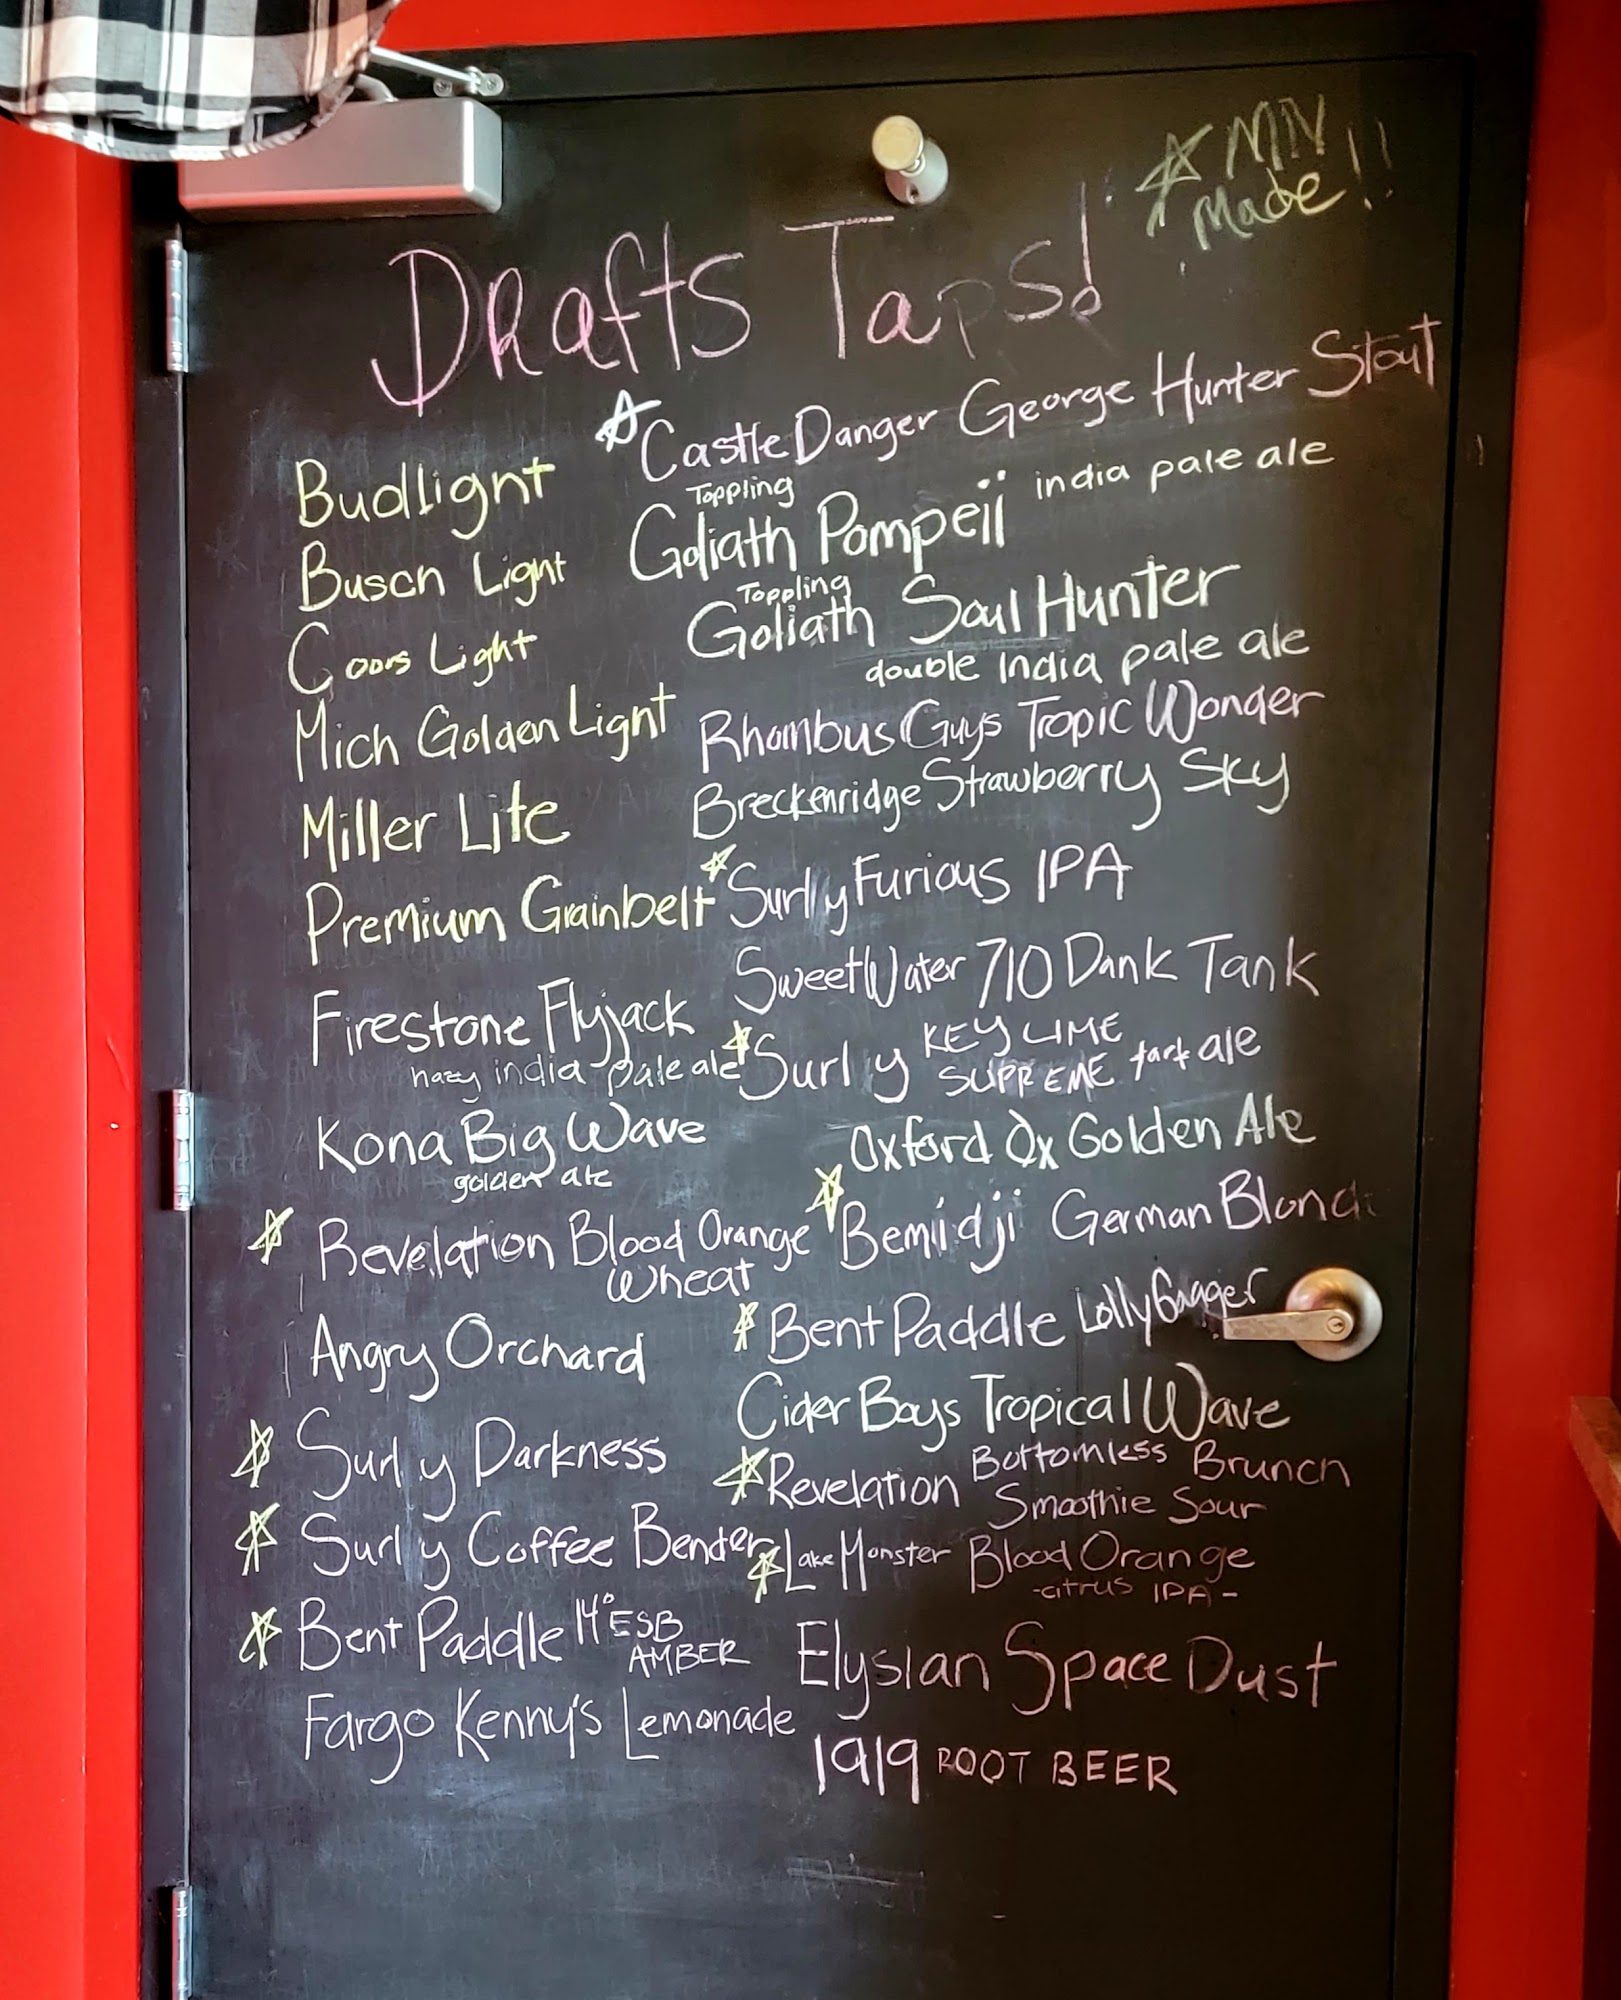 MN
Made!!
Drafts Taps!
Budlight
Busch Light
Coors Light
Mich Golden Light
Miller Lite
Premium Grainbelt
Firestone Flyjack
hazy india pale ale
Kona Big Wave
golden ale
Revelation Blood Orange
Wheat
Angry Orchard
Surly Darkness
Surly Coffee Bender
Bent Paddle 14° ESB
AMBER
Fargo Kenny's Lemonade
Castle Danger George Hunter Stout
Toppling
Goliath Pompeii india pale ale
Toppling
Goliath Soul Hunter
double India pale ale
Rhombus Guys Tropic Wonder
Breckenridge Strawberry Sky
Surly Furious IPA
SweetWater 710 Dank Tank
Surly KEY LIME
SUPREME tart ale
Oxford Ox Golden Ale
Bemidji German Blonde
Bent Paddle LollyGagger
Cider Boys Tropical Wave
Revelation Bottomless Brunch
Smoothie Sour
Lake Monster Blood Orange
-citrus IPA-
Elysian Space Dust
1919 ROOT BEER